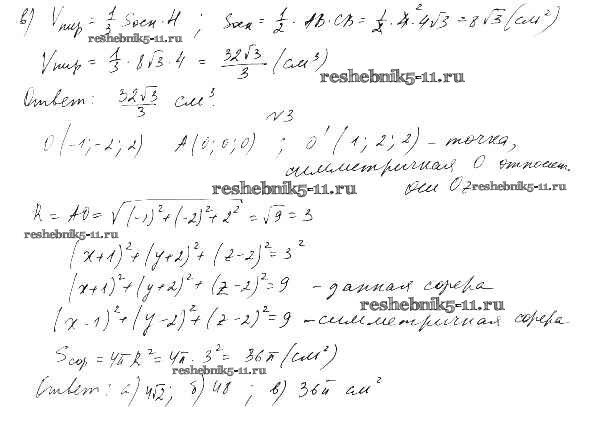 в) Vпир = 1/3 Sосн · H ; Sосн = 1/2 · AB · CB = 1/2 · 4 · 4√3 = 8√3 (см²)
reshebnik5-11.ru
Vпир = 1/3 · 8√3 · 4 = 32√3/3 (см³)
reshebnik5-11.ru
Ответ: 32√3/3 см³.
№3
O(-1; -2; 2) A(0; 0; 0) ; O'(1; 2; 2) – точка,
симметричная O относит.
оси Oz
reshebnik5-11.ru
reshebnik5-11.ru
R = AO = √((-1)² + (-2)² + 2²) = √9 = 3
reshebnik5-11.ru
(x+1)² + (y+2)² + (z-2)² = 3²
(x+1)² + (y+2)² + (z-2)² = 9 – данная сфера
reshebnik5-11.ru
(x-1)² + (y-2)² + (z-2)² = 9 – симметричная сфера
Sсф = 4πR² = 4π · 3² = 36π (см²)
reshebnik5-11.ru
Ответ: а) 4√2; б) 48 ; в) 36π см²